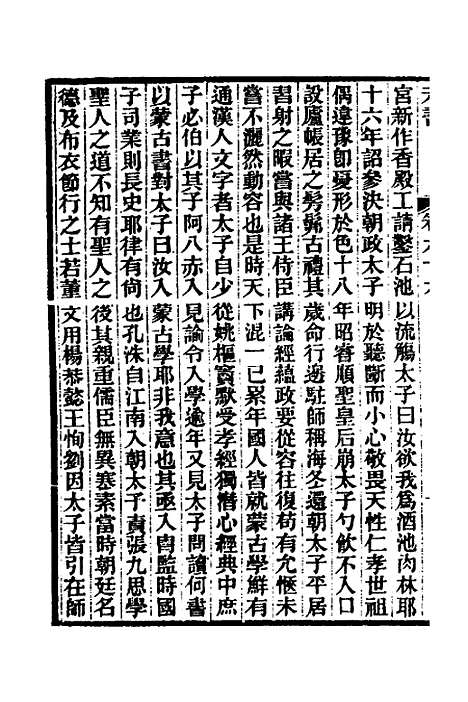 宮新作香殿工請鑿石池以流觴太子曰汝欲我爲酒池肉林耶
十六年詔參決朝政太子明於聽斷而小心敬畏天性仁孝世祖
偶違豫卽憂形於色十八年昭睿順聖皇后崩太子勺飲不入口
設廬帳居之髣髴古禮其歲命行邊駐師稱海冬還朝太子平居
習射之暇嘗與諸王侍臣講論經蘊政要從容往復苟有允愜未
嘗不灑然動容也是時天下混一已累年國人皆就蒙古學鮮有
通漢人文字者太子自少從姚樞竇默受孝經獨潛心經典中庶
子必伯以其子阿八赤入見諭令入學逾年又見太子問讀何書
以蒙古書對太子曰汝入蒙古學耶非我意也其亟入冑監時國
子司業則長史耶律有尚也孔洙自江南入朝太子責張九思學
聖人之道不知有聖人之後其親重儒臣無異寒素當時朝廷名
德及布衣節行之士若董文用楊恭懿王恂劉因太子皆引在師